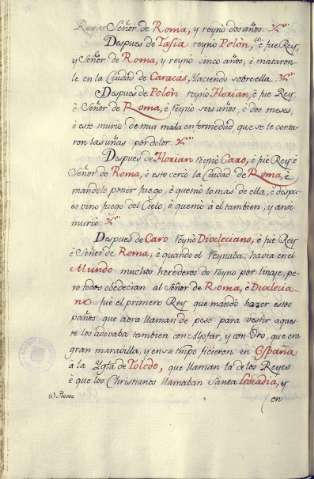 Rey é Señor de Roma, y reynó dos años.
Despues de Tasia reynó Polon, é fue Rey,
y Señor de Roma, y reynó cinco años, é mataron
le en la Ciudad de Caracas, yaciendo sobre ella.
Despues de Polon reynó Florian, é fue Rey
é Señor de Roma, é reynó seis años, é dos meses,
é este murió de muy mala enfermedad que se le corta
ron las uñas por dolor.
Despues de Florian reynó Caro, é fue Rey é
Señor de Roma, é este cercó la Ciudad de Roma, é
mandole poner fuego, é quemó lo mas de ella, é despu
es vino fuego del Cielo, é quemó a él tambien, y ansi
murió.
Despues de Caro reynó Diocleciano, é fue Rey
é Señor de Roma, é quando el Reynaba, havia en el
Mundo muchos herederos de reyno por linage, pe
ro todos obedecian al Señor de Roma, é Diocleia
no fué el primero Rey que mandó hazer estos
paños que aora llaman de peso para vestir aques
te los adovaba tambien con Alxofar, y con Oro, que era
gran maravilla, y en su tiempo ficieron en España
á la Ygla de Toledo, que llaman ta de los Reyes
é que los Christianos llamaban Santa Locadia, y
en